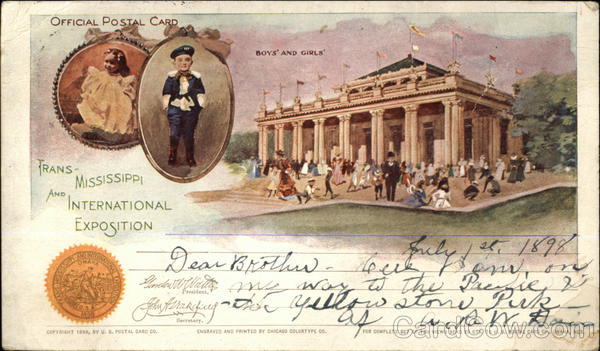 OFFICIAL POSTAL CARD
BOYS' AND GIRLS'
TRANS-
MISSISSIPPI
AND
INTERNATIONAL
EXPOSITION
July 1st, 1898
Dear Brother - Here I am, on
my way to the Pacific &
the Yellowstone Park
President.
Secretary.
COPYRIGHT 1898, BY U. S. POSTAL CARD CO.
ENGRAVED AND PRINTED BY CHICAGO COLORTYPE CO.
FOR COMPLETE SET
CardCow.com